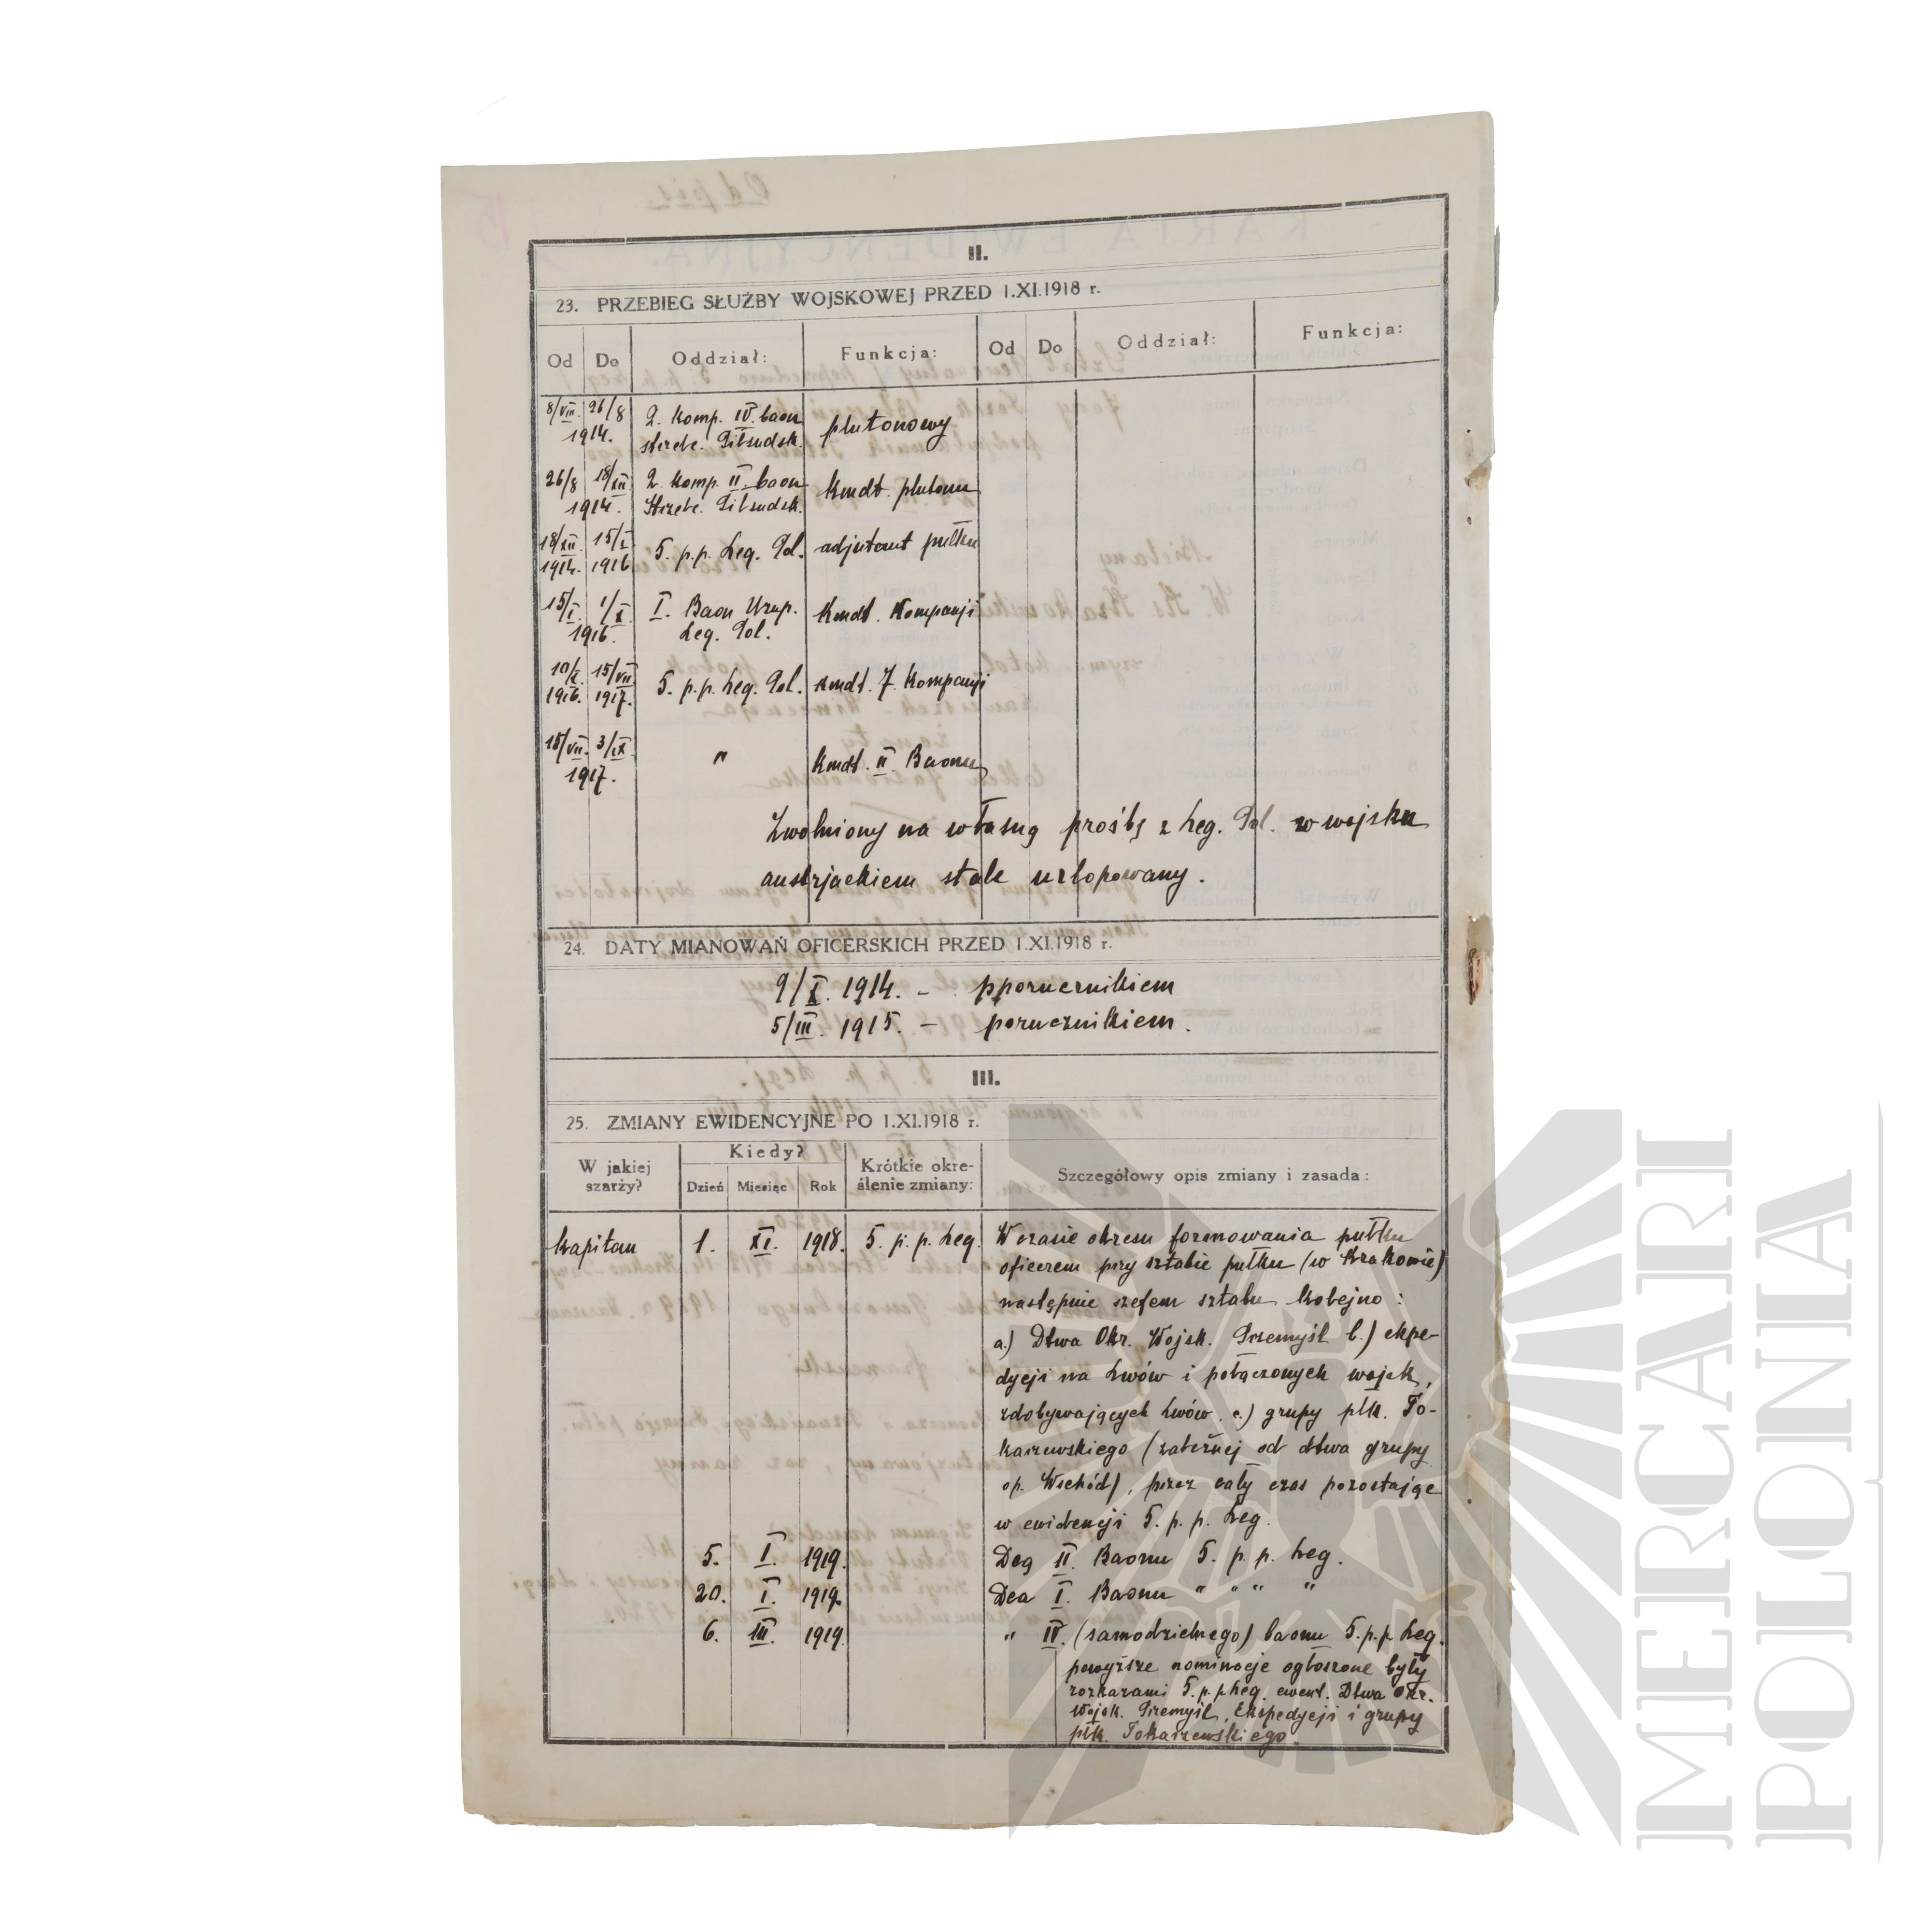 II.
23. PRZEBIEG SŁUŻBY WOJSKOWEJ PRZED 1.XI.1918 r.
Od Do Oddział: Funkcja: Od Do Oddział: Funkcja:
8/VIII. 26/8 1914. 2. Komp. IV. baon plutonowy
strzelc. Piłsudsk.
26/8 18/XII 1914. 2. Komp. II. baon Kmdt. plutonu
Strzelc. Piłsudsk.
18/XII 1914. 15/I. 1916 5. p.p. Leg. Pol. adjutant pułku
15/I. 1/X. 1916. I. Baon Uzup. Kmdt. Kompanji
Leg. Pol.
10/X. 1916. 15/VII 1917. 5. p.p. Leg. Pol. Kmdt. 7 Kompanji
15/VII. 3/IX. 1917. " Kmdt. II. Baonu
Zwolniony na własną prośbę z Leg. Pol. w wojsku
austrjackiem stale urlopowany.
24. DATY MIANOWAŃ OFICERSKICH PRZED 1.XI.1918 r.
9/X. 1914. – pporucznikiem
5/III. 1915. – porucznikiem.
III.
25. ZMIANY EWIDENCYJNE PO 1.XI.1918 r.
W jakiej szarży? Kiedy? Dzień Miesiąc Rok Krótkie określenie zmiany: Szczegółowy opis zmiany i zasada:
Kapitan 1. XI. 1918. 5. p. p. Leg. W czasie okresu formowania pułku
oficerem przy sztabie pułku (w Krakowie)
następnie szefem sztabu kolejno:
a.) Dtwa Okr. Wojsk. Przemyśl b.) ekpe-
dycji na Lwów i połączonych wojsk,
zdobywających Lwów. c.) grupy płk. To-
karzewskiego (zależnej od dtwa grupy
op. Wschód), przez cały czas pozostając
w ewidencji 5. p. p. Leg.
5. I. 1919. Dcą II. Baonu 5. p. p. Leg.
20. I. 1919. Dca I. Baonu " " " "
6. III. 1919. " IV. (samodzielnego) baonu 5. p. p. Leg.
powyższe nominacje ogłoszone były
rozkazami 5. p. p Leg. ewent. Dtwa Okr.
Wojsk. Przemyśl, Ekspedycji i grupy
płk. Tokarzewskiego.
MERCARI
POLONIA